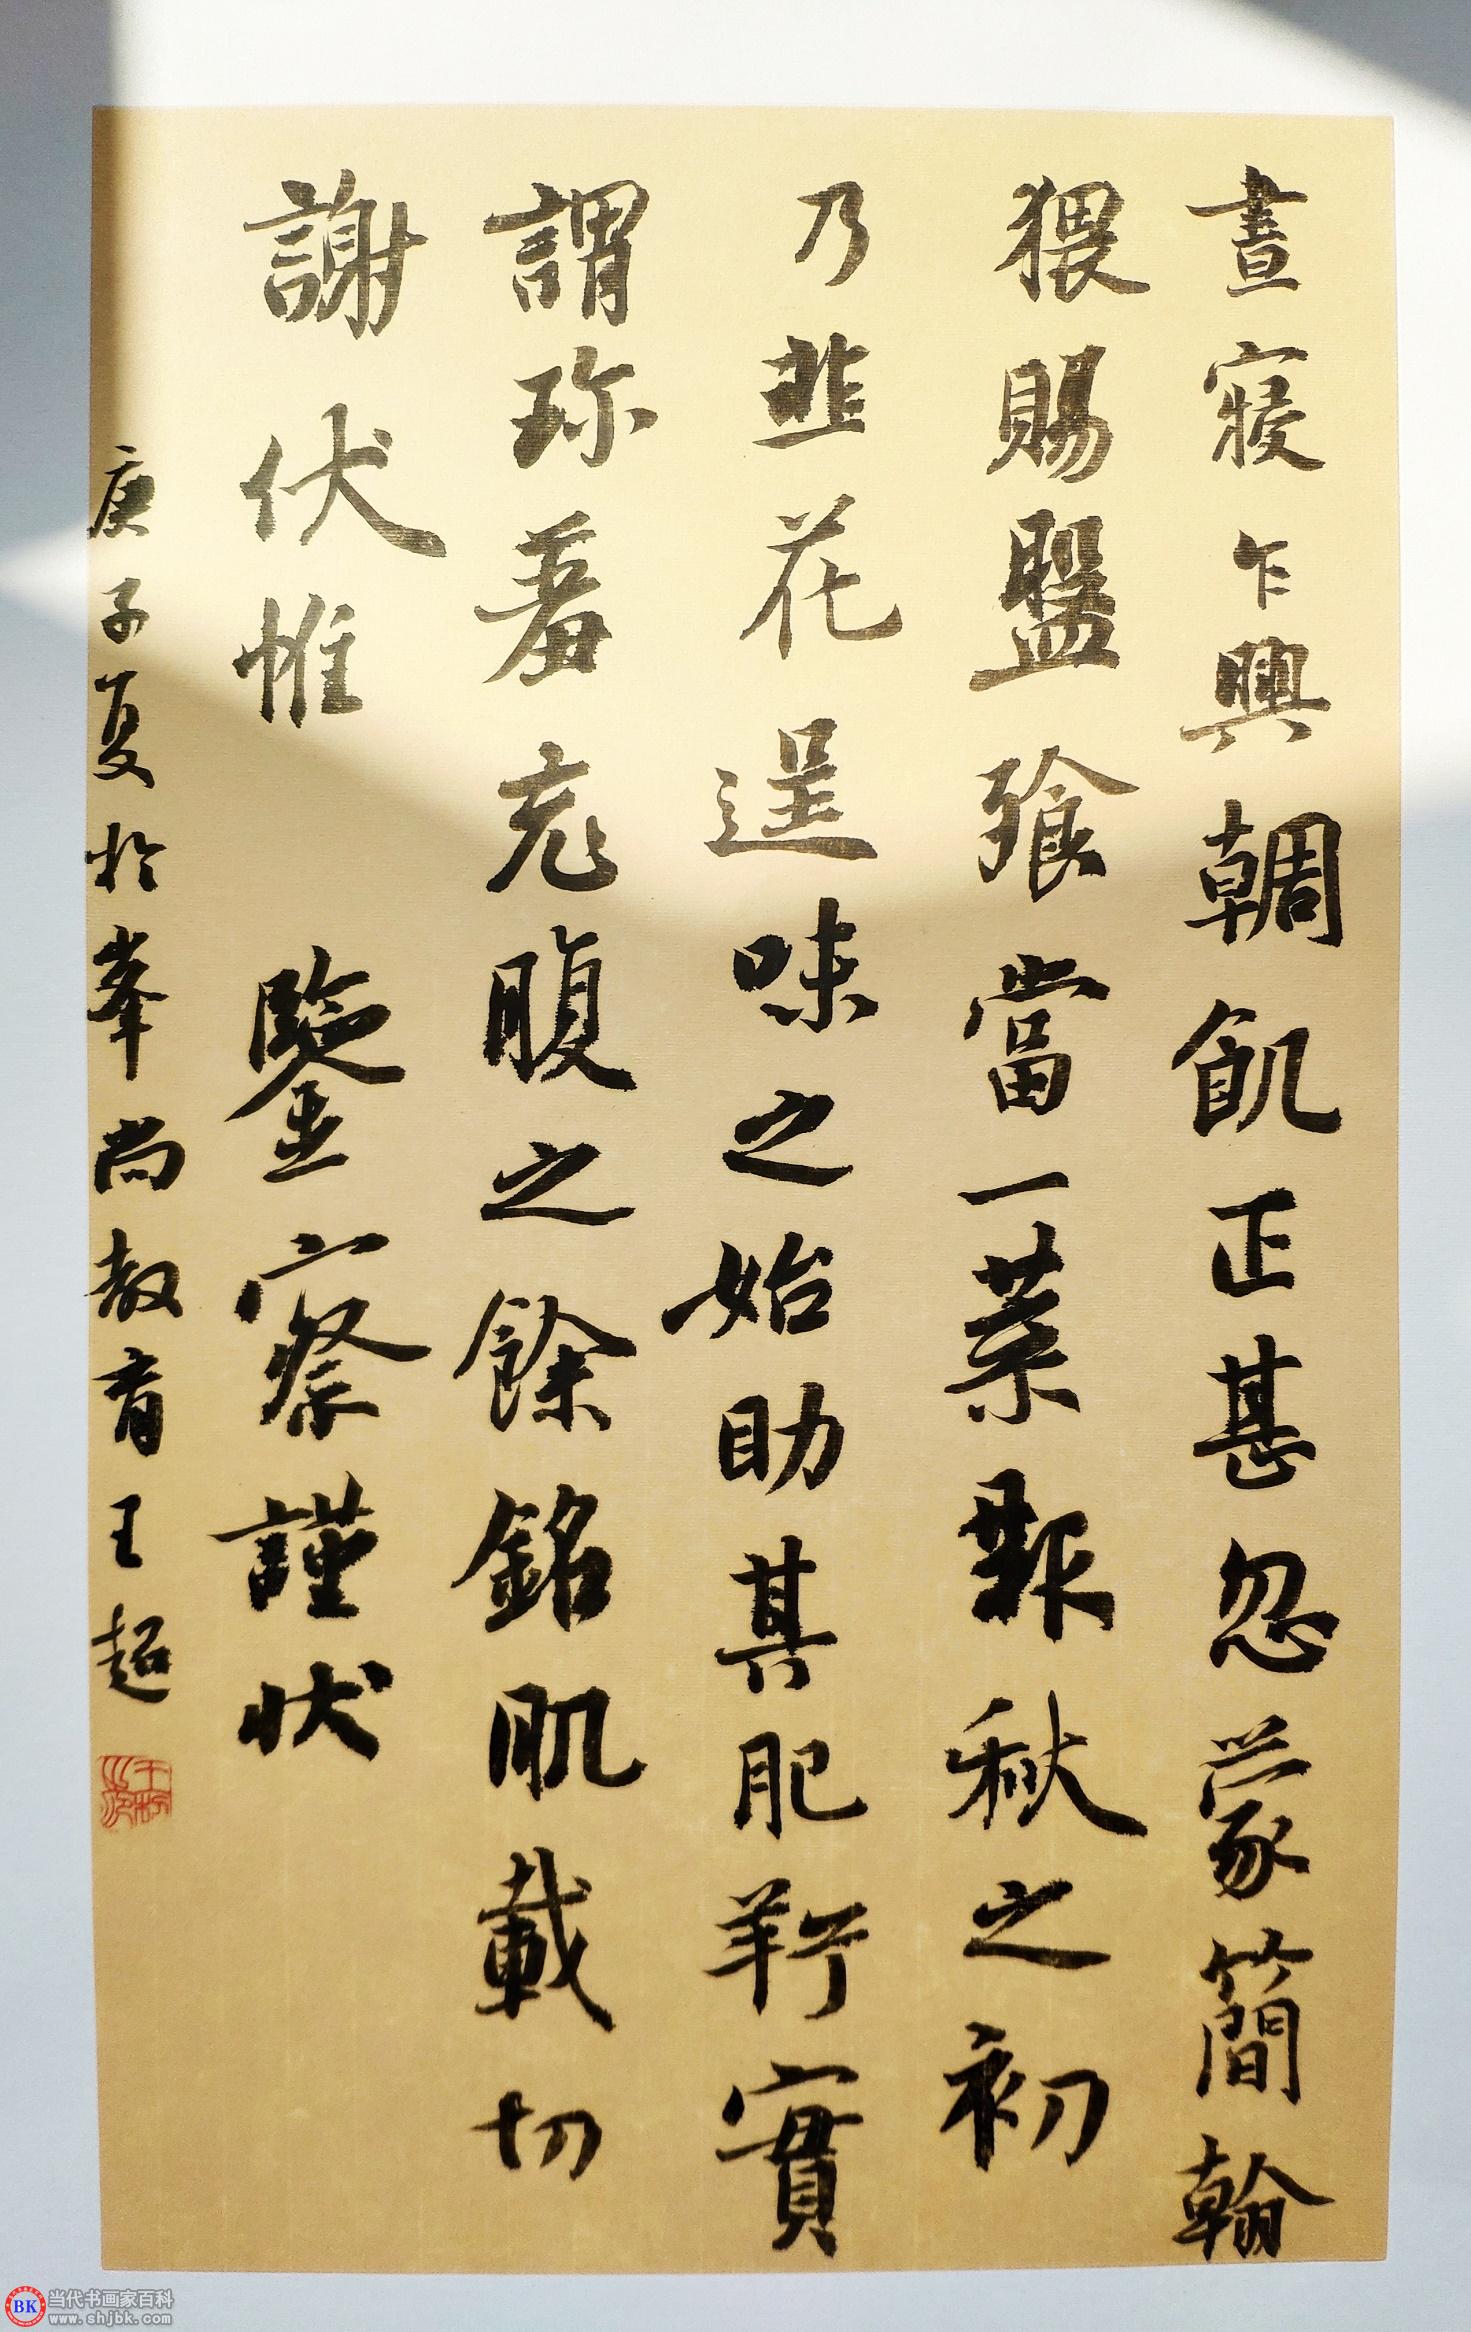 晝寢乍興輖飢正甚忽蒙簡翰
猥賜盤飧當一葉報秋之初
乃韭花逞味之始助其肥羜實
謂珍羞充腹之餘銘肌載切
謝伏惟鑒察謹狀
庚子夏於峯尚教育王超
BK 当代书画家百科
www.shjbk.com